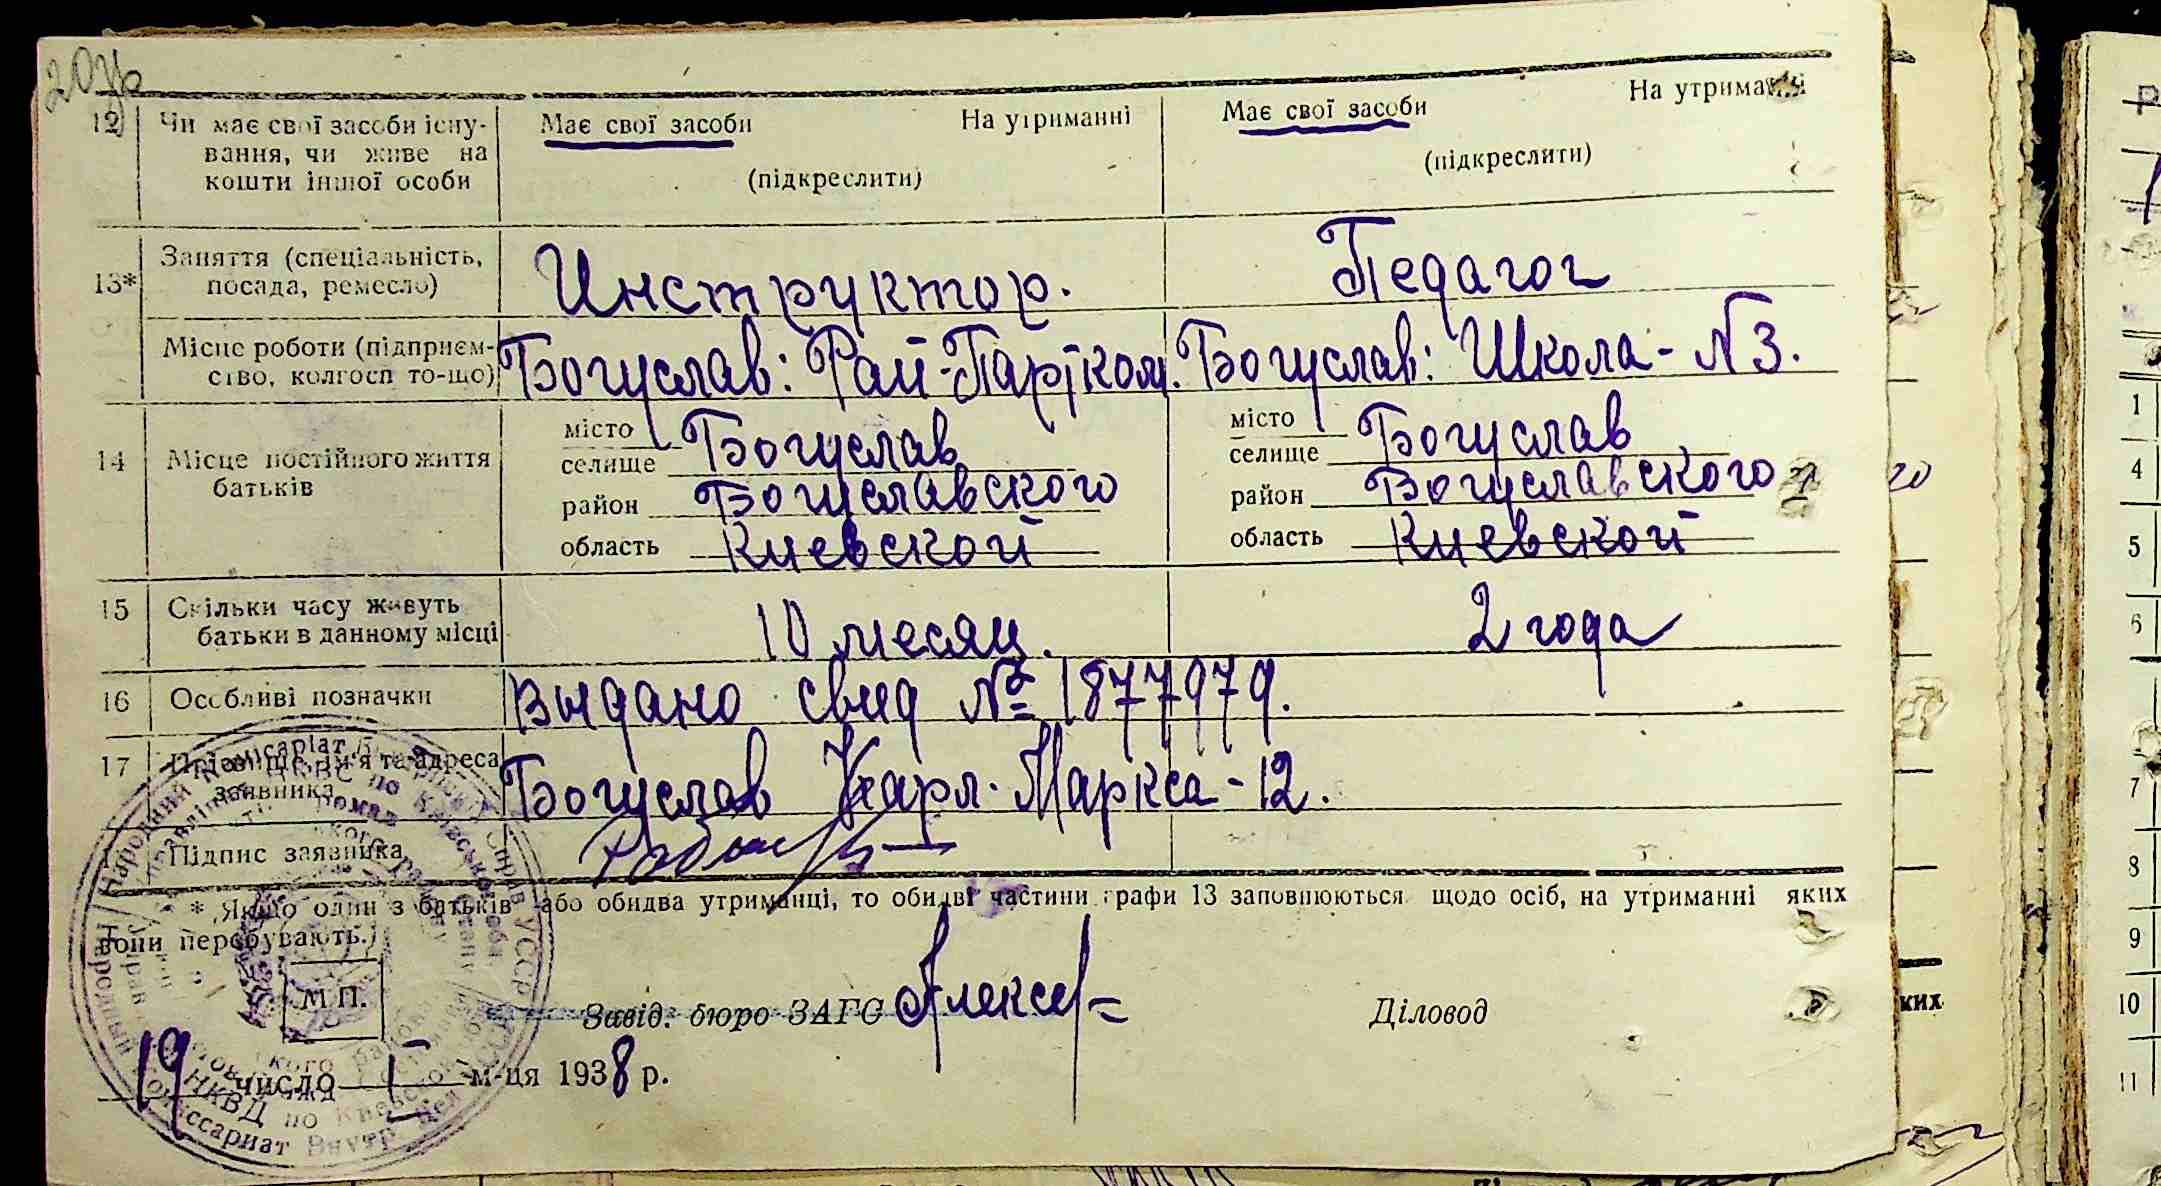 12 Чи має свої засоби існу- Має свої засоби На утриманні Має свої засоби На утриманні
вання, чи живе на
кошти іншої особи (підкреслити) (підкреслити)
13* Заняття (спеціальність,
посада, ремесло) Инструктор. Педагог
Місце роботи (підприєм-
ство, колгосп то-що) Богуслав: Рай-Партком. Богуслав: Школа - №3.
14 Місце постійного життя
батьків
місто Богуслав місто Богуслав
селище селище
район Богуславского район Богуславского
область Киевской область Киевской
15 Скільки часу живуть
батьки в данному місці 10 месяц. 2 года
16 Особливі позначки Выдано свид № 1877979.
17 Прізвище, ім'я та адреса
заявника Богуслав Карл. Маркса - 12.
Підпис заявника
* Якщо один з батьків або обидва утриманці, то обидві частини графи 13 заповнюються щодо осіб, на утриманні яких
вони перебувають.
М.П.
Завід. бюро ЗАГС Діловод
19 число I м-ця 1938 р.
ких
1
4
5
6
7
8
9
10
11